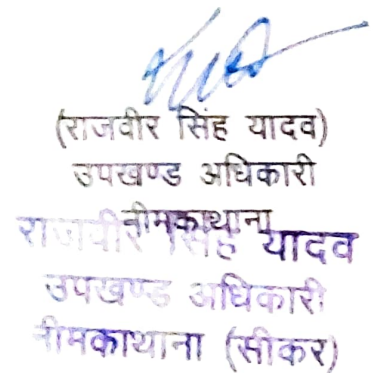 (राजवीर सिंह यादव)
उपखण्ड अधिकारी
नीमकाथाना
राजवीर सिंह यादव
उपखण्ड अधिकारी
नीमकाथाना (सीकर)